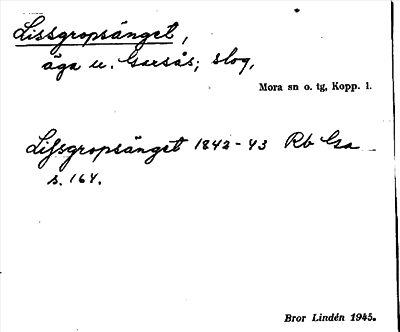 Lissgropsänget,
äga u. Garsås; slog,
Mora sn o. tg, Kopp. l.
Lissgropsänget 1842-43 Rb Gsa
s. 164.
Bror Lindén 1945.